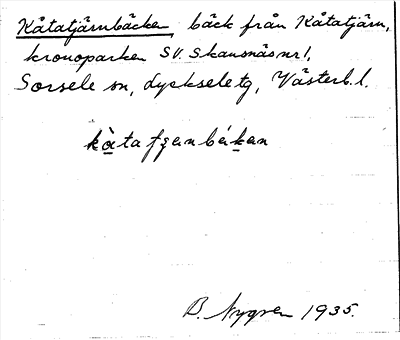 Kåtatjärnbäcken, bäck från Kåtatjärn,
kronoparken SV. Skansnäs nr 1,
Sorsele sn, Lycksele tg, Västerb. l.
B. Nygren 1935.